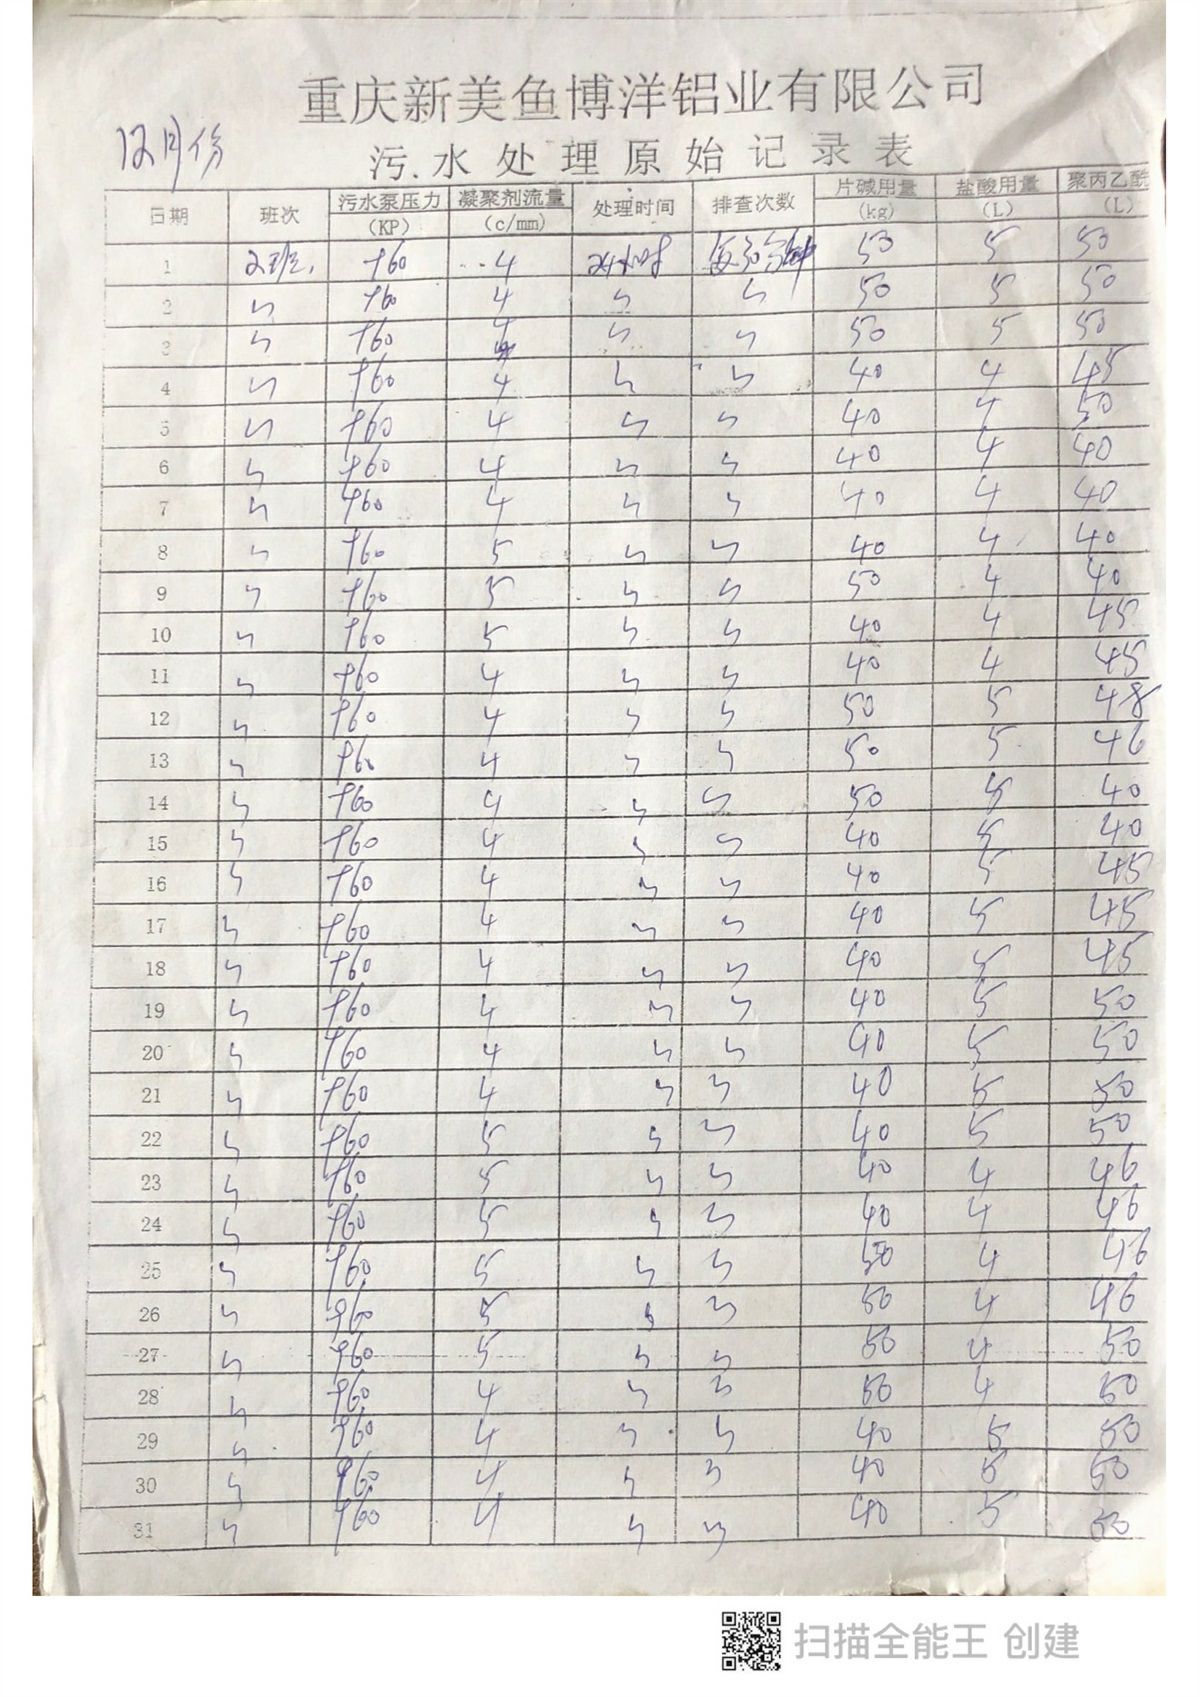 重庆新美鱼博洋铝业有限公司
12月份
污水处理原始记录表
日期 班次 污水泵压力(KP) 凝聚剂流量(c/mm) 处理时间 排查次数 片碱用量(kg) 盐酸用量(L) 聚丙乙酰(L)
1 2班. 760 4 24小时 每30分钟 50 5 50
2 ㄣ 760 4 ㄣ ㄣ 50 5 50
3 ㄣ 760 4 ㄣ ㄣ 50 5 50
4 ㄣ 760 4 ㄣ ㄣ 40 4 45
5 ㄣ 760 4 ㄣ ㄣ 40 4 50
6 ㄣ 760 4 ㄣ ㄣ 40 4 40
7 ㄣ 760 4 ㄣ ㄣ 40 4 40
8 ㄣ 760 5 ㄣ ㄣ 40 4 40
9 ㄣ 760 5 ㄣ ㄣ 50 4 40
10 ㄣ 760 5 ㄣ ㄣ 40 4 45
11 ㄣ 760 4 ㄣ ㄣ 40 4 45
12 ㄣ 760 4 ㄣ ㄣ 50 5 48
13 ㄣ 760 4 ㄣ ㄣ 50 5 46
14 ㄣ 760 4 ㄣ ㄣ 50 5 40
15 ㄣ 760 4 ㄣ ㄣ 40 5 40
16 ㄣ 760 4 ㄣ ㄣ 40 5 45
17 ㄣ 760 4 ㄣ ㄣ 40 5 45
18 ㄣ 760 4 ㄣ ㄣ 40 5 45
19 ㄣ 760 4 ㄣ ㄣ 40 5 50
20 ㄣ 760 4 ㄣ ㄣ 40 5 50
21 ㄣ 760 4 ㄣ ㄣ 40 5 50
22 ㄣ 760 5 ㄣ ㄣ 40 5 50
23 ㄣ 760 5 ㄣ ㄣ 40 4 46
24 ㄣ 760 5 ㄣ ㄣ 40 4 46
25 ㄣ 760 5 ㄣ ㄣ 50 4 46
26 ㄣ 760 5 ㄣ ㄣ 50 4 46
27 ㄣ 760 5 ㄣ ㄣ 50 4 50
28 ㄣ 760 4 ㄣ ㄣ 50 4 50
29 ㄣ 760 4 ㄣ ㄣ 40 5 50
30 ㄣ 760 4 ㄣ ㄣ 40 5 50
31 ㄣ 760 4 ㄣ ㄣ 40 5 50
扫描全能王 创建